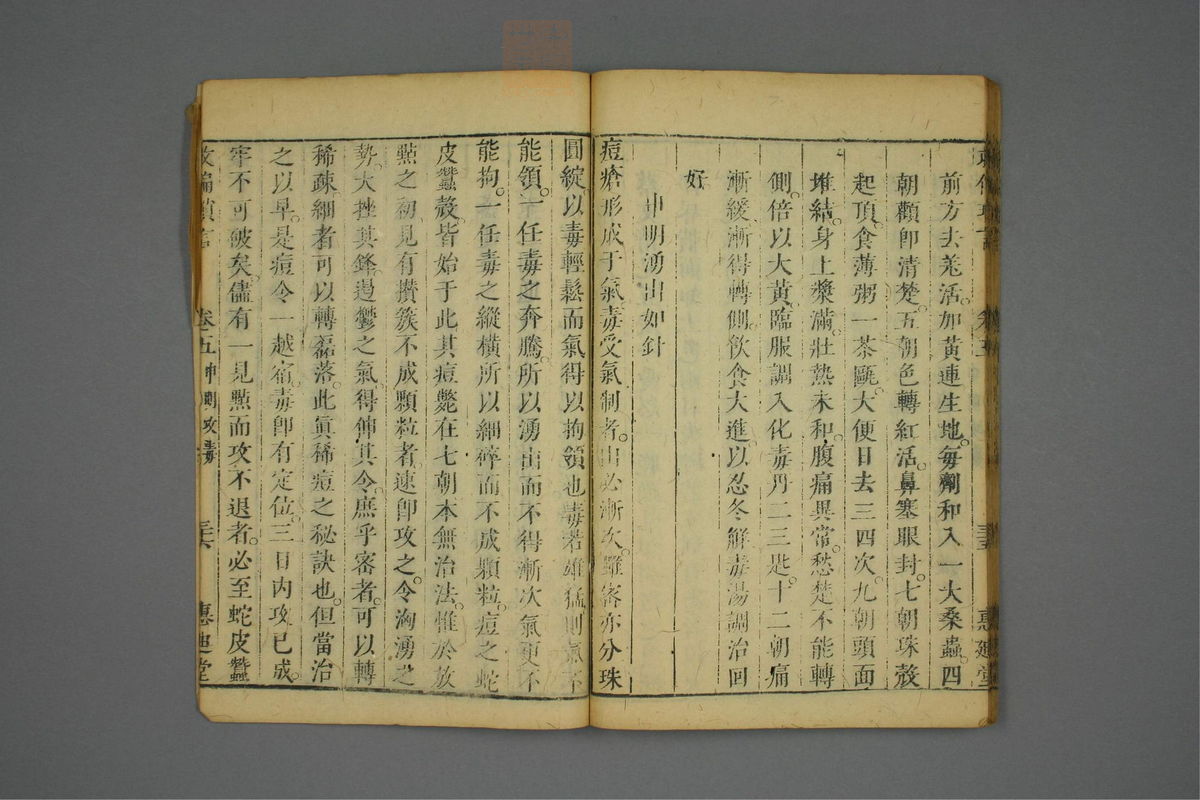 前方去羗活。加黃連生地。每劑和入一大桑蟲。四
朝顴卽清楚。五朝色轉紅活。鼻塞眼封。七朝珠殼
起頂。食薄粥一茶甌。大便日去三四次。九朝頭面
堆結。身上漿滿。壯熱未和。腹痛異常。愁楚不能轉
側。倍以大黃。臨服調入化毒丹二三匙。十二朝痛
漸緩。漸得轉側。飲食大進。以忍冬解毒湯調治回
好。
申明湧出如針
痘瘡形成于氣。毒受氣制者。出必漸次。雖密亦分珠
圓綻。以毒輕鬆而氣得以拘領也。毒若雄猛則氣不
能領。一任毒之奔騰。所以湧出而不得漸次。氣更不
能拘。一任毒之縱橫。所以細碎而不成顆粒。痘之蛇
皮蠶殼。皆始于此。其痘斃在七朝。本無治法。惟於放
㸃之初。見有攢簇不成顆粒者。速卽攻之。令洶湧之
勢。大挫其鋒。遏鬱之氣。得伸其令。庶乎密者。可以轉
稀疎。細者可以轉磊落。此眞稀痘之秘訣也。但當治
之以早。是痘令一越宿。毒卽有定位。三日內攻已成。
牢不可破矣。儘有一見㸃而攻不退者。必至蛇皮蠶
卷五 申明攻毒 三六 惠迪堂